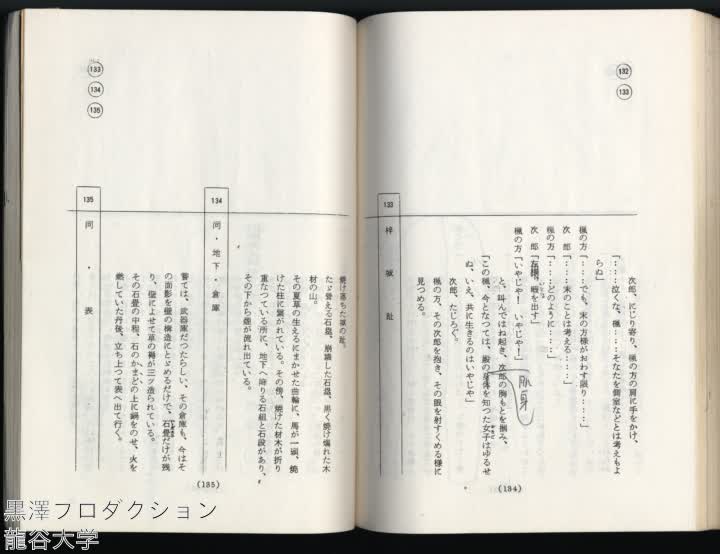 132
133
次郎、にじり寄り、楓の方の肩に手をかけ、
「‥‥泣くな、楓‥‥そなたを側室などとは考えもよ
らぬ」
楓の方「‥‥でも、末の方様がおわす限り‥‥」
次郎「‥‥末のことは考える‥‥」
楓の方「‥‥どのように‥‥」
次郎「暇を出す」
楓の方「いやじゃ! いやじゃ!」
と、叫んではね起き、次郎の胸もとを掴み、
「この楓、今となつては、殿の身体を知つた女子はゆるせ
ぬ、いえ、共に生きるのはいやじゃ」
次郎、たじろぐ。
楓の方、その次郎を抱き、その眼を射すくめる様に
見つめる。
肌身
133
梓城趾
(134)
133
134
135
焼け落ちた城の趾。
たゞ聳える石塁、崩壊した石塁、黒く焼け爛れた木
材の山。
その夏草の生えるにまかせた曲輪に、馬が一頭、焼
けた柱に繋がれている。その傍、焼けた材木が折り
重なつている所に、地下へ降りる石組と石段があり、
その下から煙が流れ出ている。
134
同・地下・倉庫
嘗ては、武器庫だつたらしい、その倉庫も、今はそ
の面影を壁の構造にとゞめるだけで、石畳だけが残
り、壁によせて草の褥が三ツ造られている。
その石畳の中程、石のかまどの上に鍋をのせ、火を
燃していた丹後、立ち上つて表へ出て行く。
135
同・表
(135)
黒澤プロダクション
龍谷大学